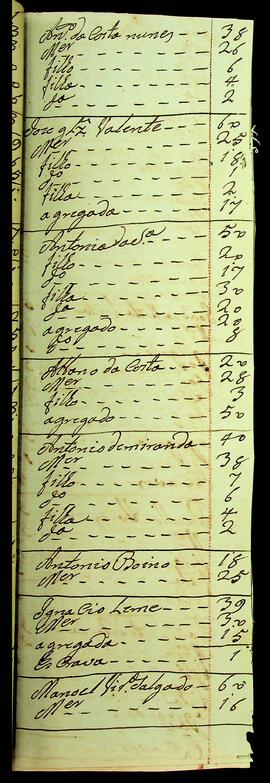 Anto da Costa nunes 38
Mer 26
fillo 6
filla 4
Da 2
Joze glz Valente 60
Mer 25
fillo 18
Do 1
filla 2
agregada 17
Antonia da Sa 50
fillo 20
Do 17
filla 30
Da 20
agregado 20
Do 8
Albano da Costa 20
Mer 28
fillo 3
agregado 50
Antonio de miranda 40
Mer 38
fillo 7
Do 6
filla 4
Da 2
Antonio Boino 18
Mer 25
Ignacio Leme 39
Mer 30
agregada 15
Escrava 1
Manoel Vira Salgado 60
Mer 16